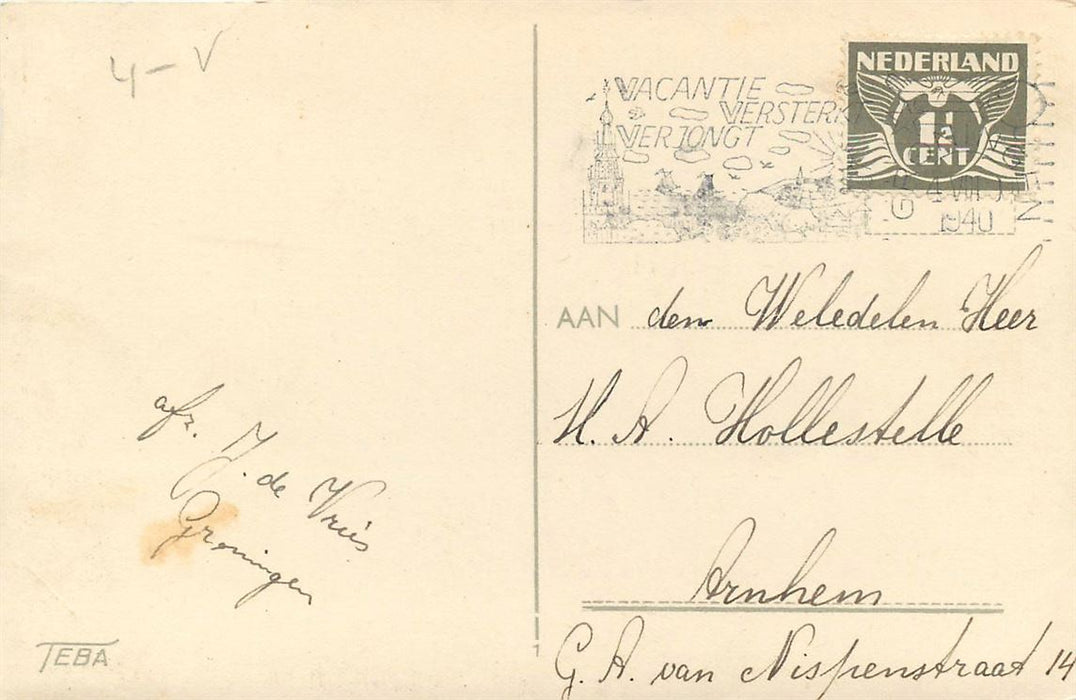 4-V
NEDERLAND
1½
CENT
VACANTIE
VERSTERKT
VERJONGT
4 VIII
1940
AAN den Weledelen Heer
H. A. Hollestelle
Arnhem
G. A. van Nispenstraat 14
afz. J. de Vries
Groningen
TEBA
1